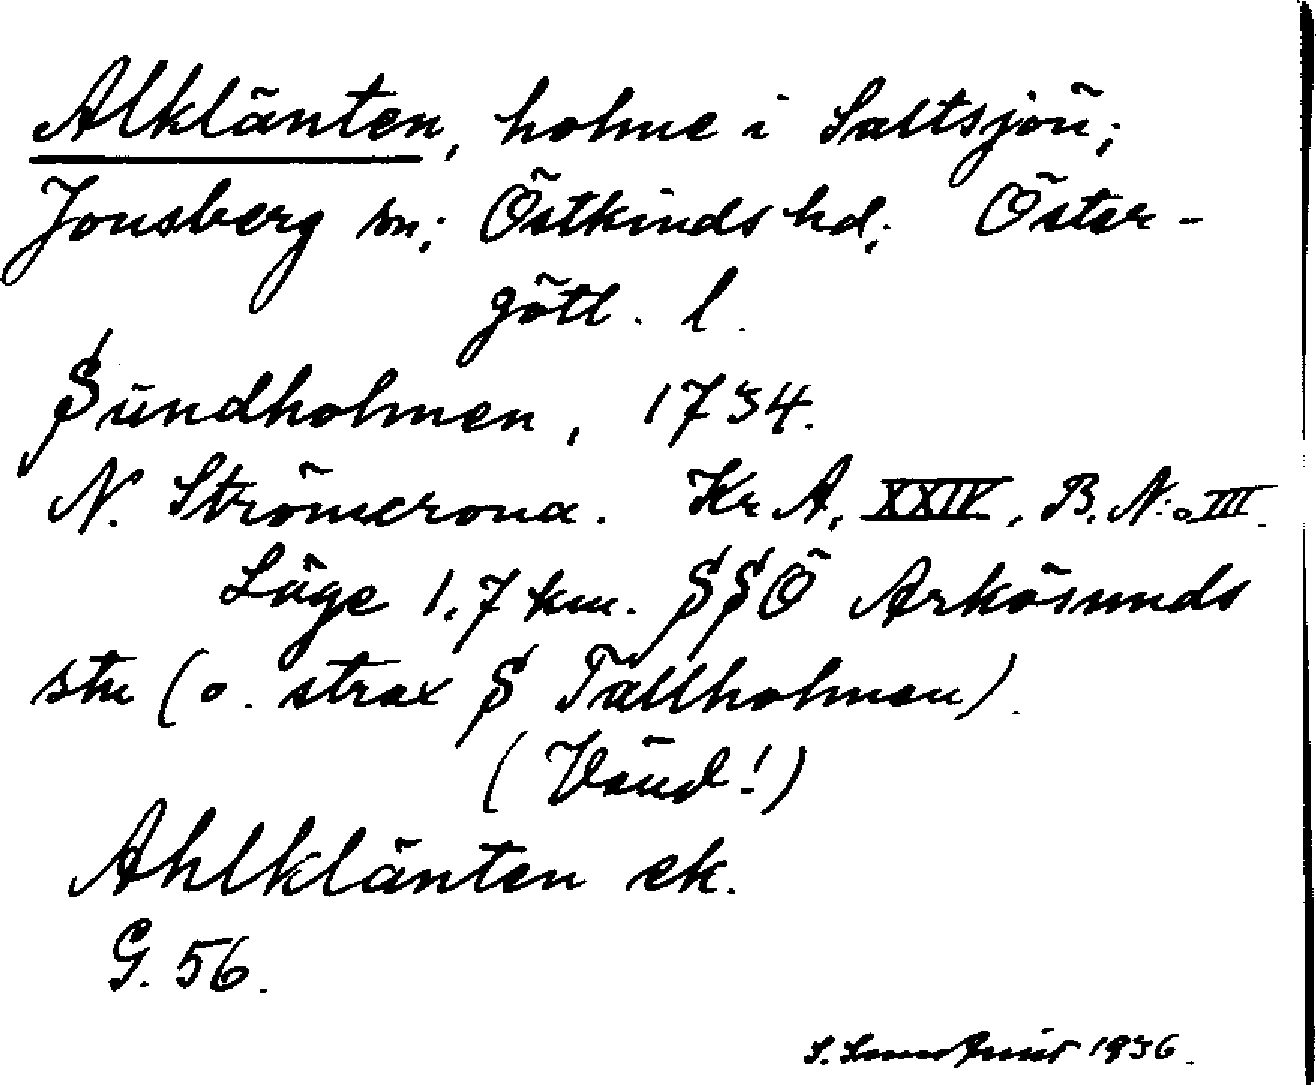 Alklänten, holme i Saltsjön;
Jonsberg sn; Östkinds hd; Öster-
götl. l.
Sundholmen, 1734.
N. Strömcrona. Kr. A, XXIV, B, N:o III.
Läge 1,7 km. SSÖ Arkösunds
stn (o. strax S Tallholmen).
(Vänd!)
Ahlklänten ek.
G. 56.
S. 1936.